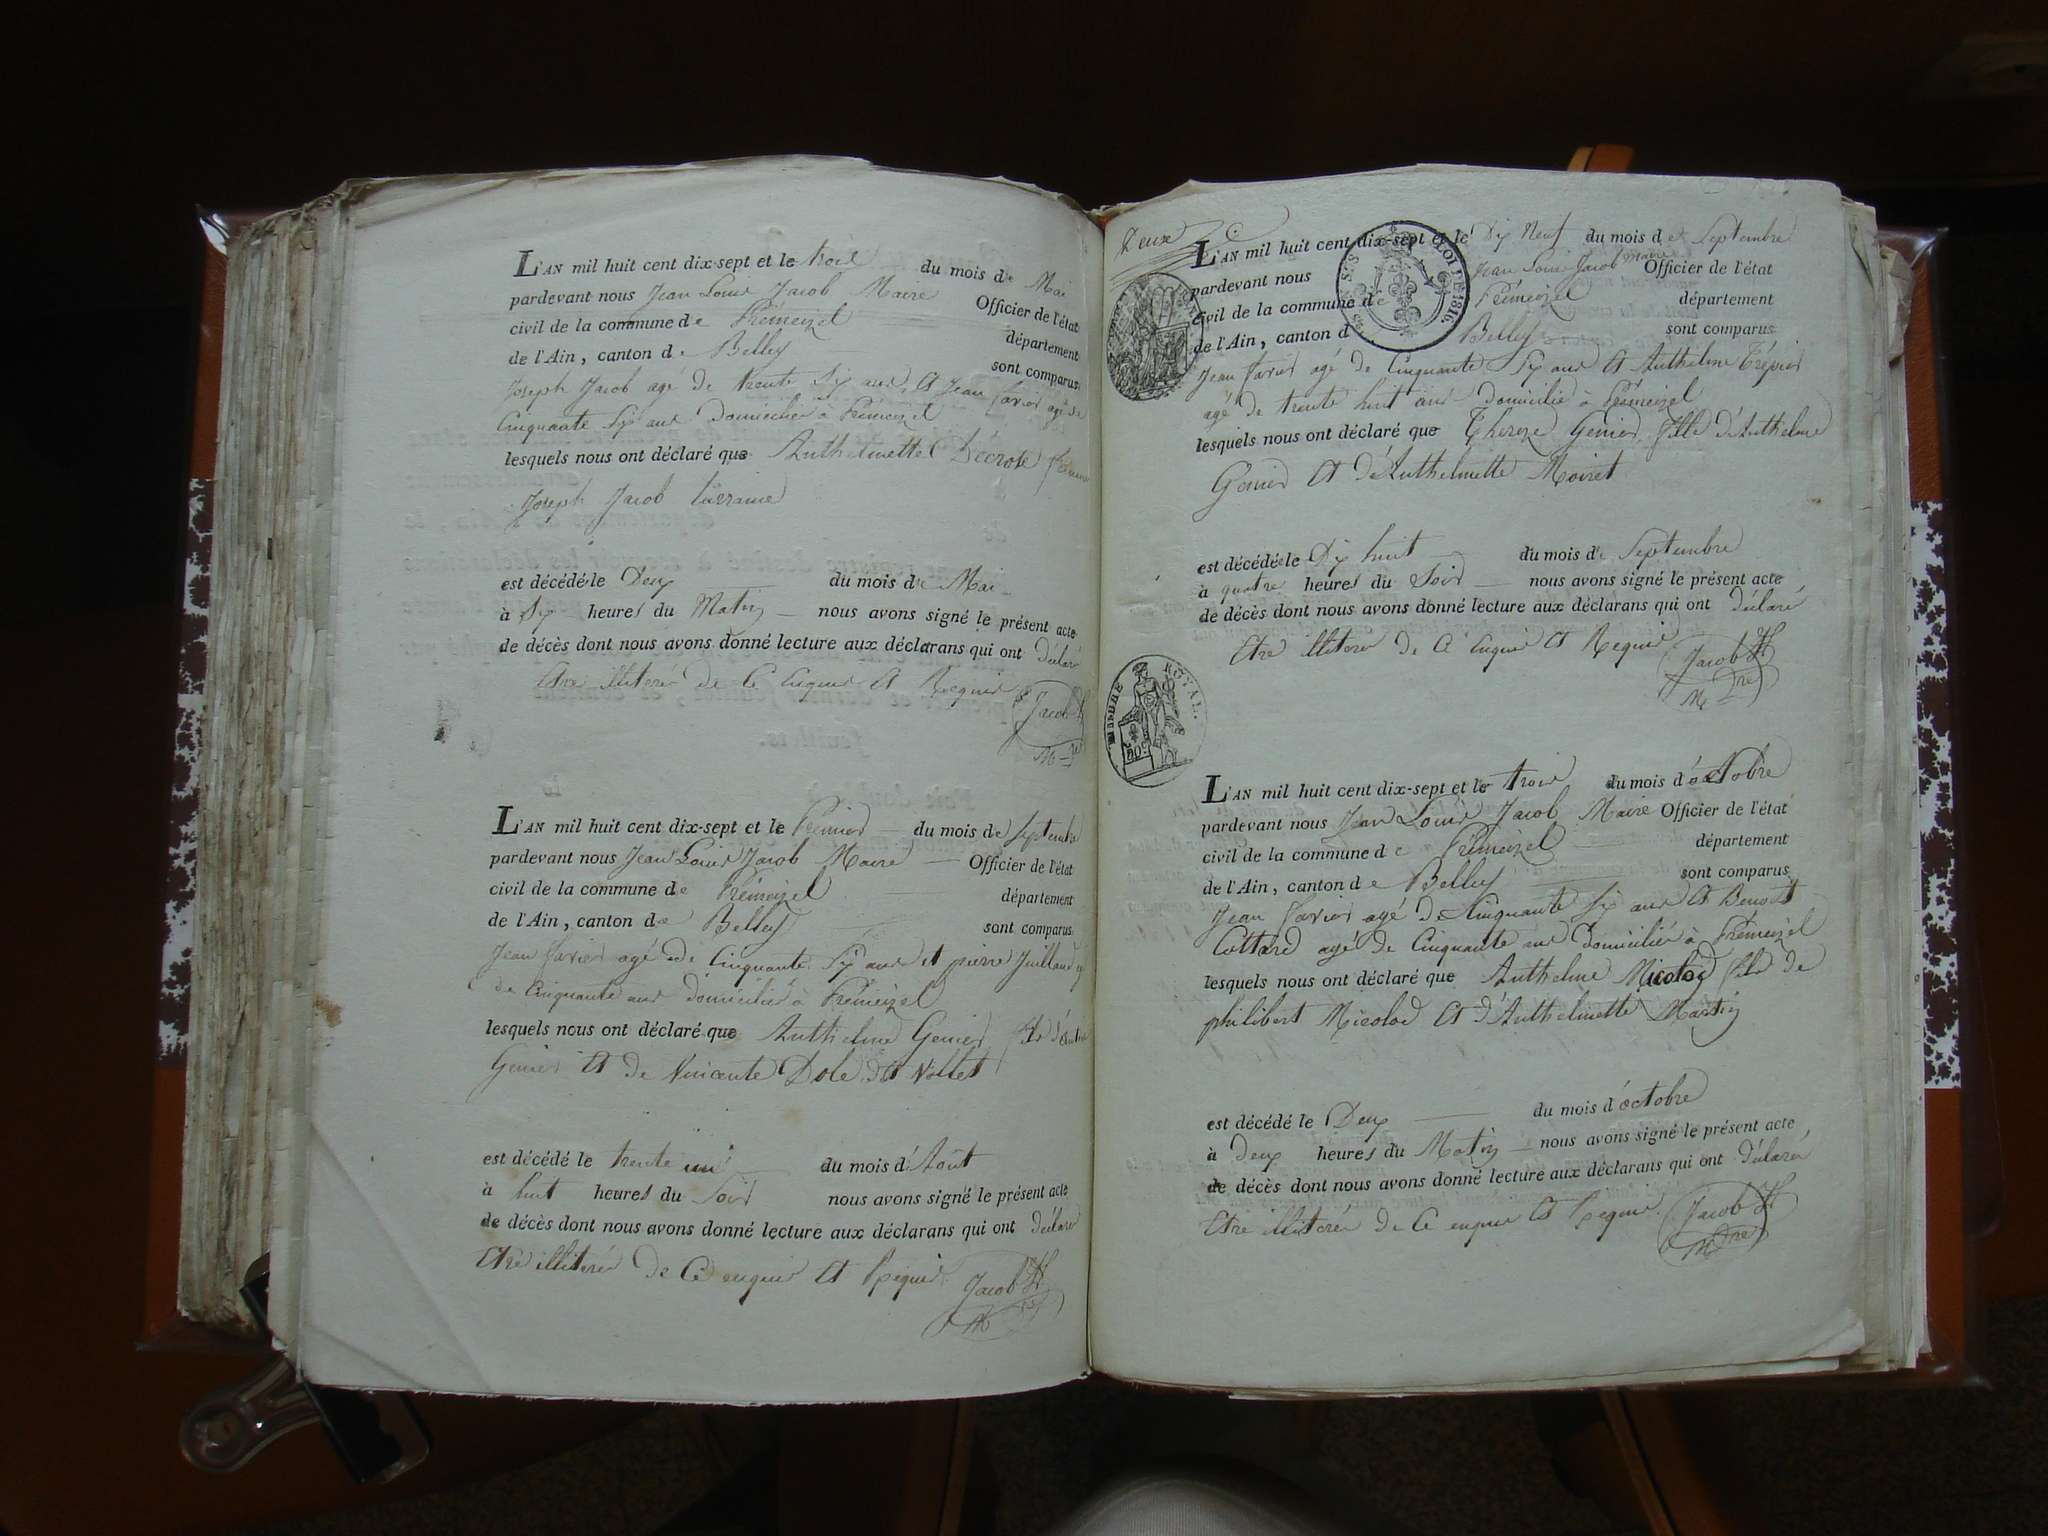 L'AN mil huit cent dix-sept et le trois du mois de Mai
pardevant nous Jean Louis Jacob Maire Officier de l'état
civil de la commune de Prémeizel département
de l'Ain, canton de Belley sont comparus
Joseph Jacob agé de trente Six ans Et Jean Savier agé de
Cinquante Six ans Domiciliés à Prémeizel
lesquels nous ont déclaré que Anthelmette Décrose femme
Joseph Jacob
est décédée le Deux du mois de Mai
à Six heures du Matin nous avons signé le présent acte
de décès dont nous avons donné lecture aux déclarans qui ont déclaré
Etre illiterés de Ce Enquis Et Requis Jacob
L'AN mil huit cent dix-sept et le Premier du mois de Septembre
pardevant nous Jean Louis Jacob Maire Officier de l'état
civil de la commune de Prémeizel département
de l'Ain, canton de Belley sont comparus
Jean Savier agé de Cinquante Six ans et pierre Juilland
de Cinquante ans domiciliés à Prémeizel
lesquels nous ont déclaré que Anthelme Genier fils
Genier Et de Vincente Dole dit Vollet
est décédé le trente un du mois d'Août
à huit heures du Soir nous avons signé le présent acte
de décès dont nous avons donné lecture aux déclarans qui ont déclaré
Etre illiterés de Ce enquis Et Requis Jacob
Deux
L'AN mil huit cent dix-sept et le Dix Neuf du mois de Septembre
pardevant nous Jean Louis Jacob Maire Officier de l'état
civil de la commune de Prémeizel département
de l'Ain, canton d Belley sont comparus
LOI DE 1816
Jean Savier agé de Cinquante Six ans Et Anthelme Trépier
agé de trente huit ans Domiciliés à Prémeizel
lesquels nous ont déclaré que Thereze Genier fille d'Anthelme
Genier Et d'Anthelmette Moiret
est décédée le Dix huit du mois de Septembre
à quatre heures du Soir nous avons signé le présent acte
de décès dont nous avons donné lecture aux déclarans qui ont déclaré
Etre illiterés de Ce Enquis Et Requis Jacob
TIMBRE ROYAL.
L'AN mil huit cent dix-sept et le trois du mois d'octobre
pardevant nous Jean Louis Jacob Maire Officier de l'état
civil de la commune de Prémeizel département
de l'Ain, canton de Belley sont comparus
Jean Savier agé de Cinquante Six ans Et Benoit
Cottard agé de Cinquante ans Domiciliés à Prémeizel
lesquels nous ont déclaré que Anthelme Nicolod fils de
philibert Nicolod Et d'Anthelmette Martin
est décédé le Deux du mois d'octobre
à Deux heures du Matin nous avons signé le présent acte
de décès dont nous avons donné lecture aux déclarans qui ont déclaré
Etre illiterés de Ce enquis Et Requis Jacob